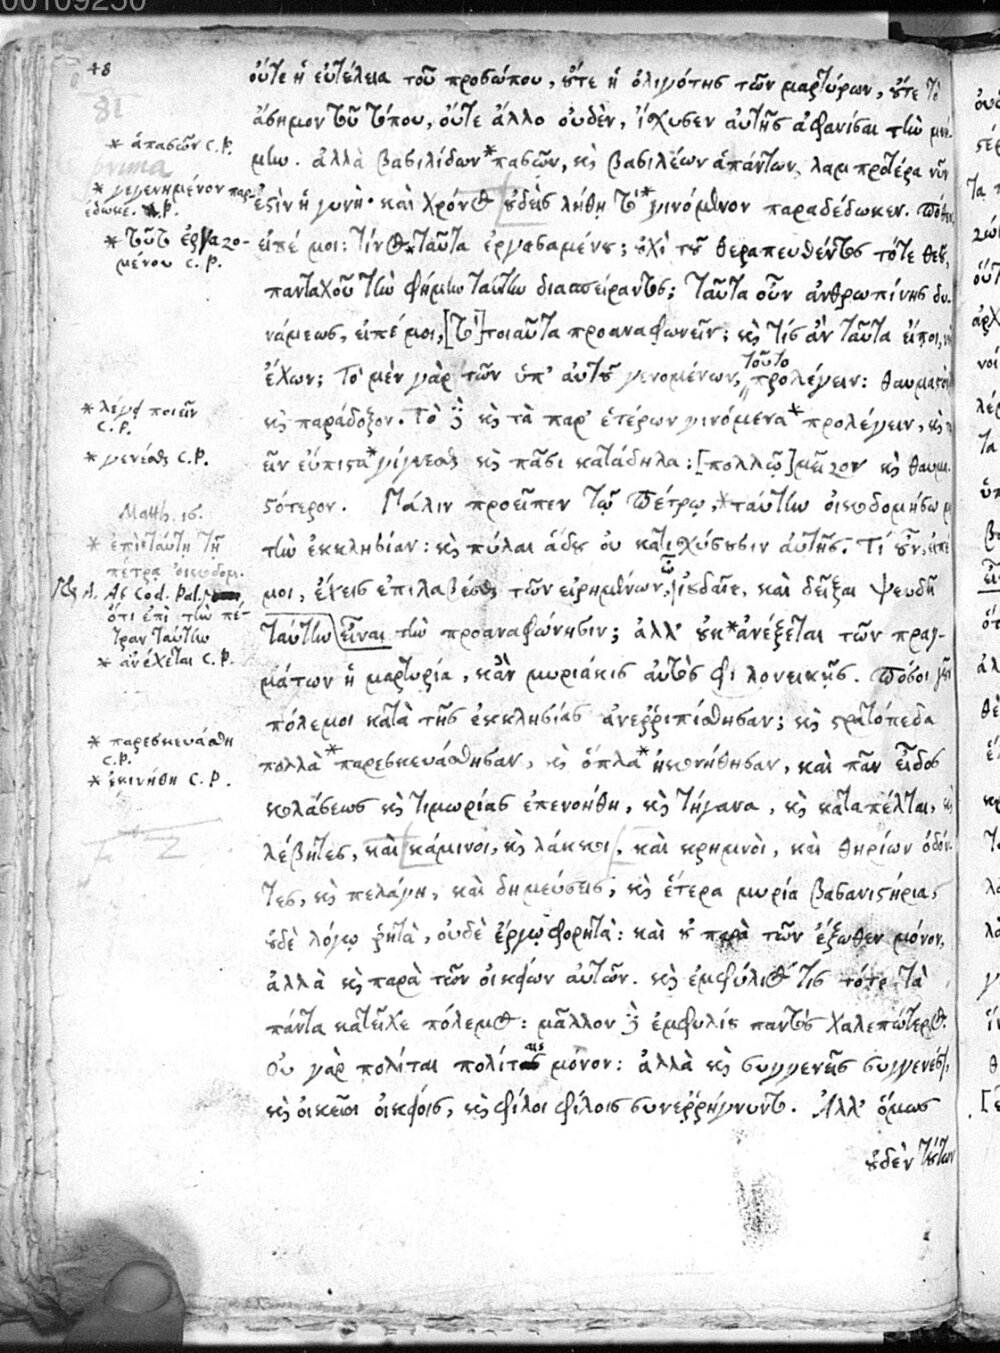 00109250
48
81
οὔτε ἡ εὐτέλεια τοῦ προσώπου, οὔτε ἡ ὀλιγότης τῶν μαρτύρων, οὔτε τὸ
ἄσημον τοῦ τόπου, οὔτε ἄλλο οὐδὲν, ἴσχυσεν αὐτῆς ἀφανίσαι τὴν μνή-
μην. ἀλλὰ βασιλίδων * πασῶν, καὶ βασιλέων ἁπάντων, λαμπροτέρα νῦν
ἐστὶν ἡ γυνή. καὶ χρόνος [οὐδεὶς λήθῃ τὸ * γινόμενον παραδέδωκεν. Πόθεν,
εἰπέ μοι: τίνος * ταῦτα ἐργασαμένου; οὐχὶ τοῦ θεραπευθέντος τότε θεοῦ,
πανταχοῦ τὴν φήμην ταύτην διασπείραντος; ταῦτα οὖν ἀνθρωπίνης δυ-
νάμεως, εἰπέ μοι, [τὸ] τοιαῦτα προαναφωνεῖν; καὶ τίς ἂν ταῦτα εἴποι,
ἔχων; τὸ μὲν γὰρ τῶν ὑπ' αὐτοῦ γενομένων, τοῦτο προλέγειν: θαυμαστὸν
καὶ παράδοξον. τὸ δὲ καὶ τὰ παρ' ἑτέρων γινόμενα * προλέγειν, καὶ
εῖν εὔπιστα * γίγνεσθαι καὶ πᾶσι κατάδηλα: [πολλῷ] μεῖζον καὶ θαυμα-
στότερον. Πάλιν προεῖπεν τῷ Πέτρῳ, * ταύτην οἰκοδομήσω
τὴν ἐκκλησίαν: καὶ πύλαι ᾅδου οὐ κατισχύσουσιν αὐτῆς. Τί οὖν, εἰπέ
μοι, ἔχεις ἐπιλαβέσθαι τῶν εἰρημένων, ὦ ἰουδαῖε, καὶ δεῖξαι ψευδῆ
ταύτην εἶναι τὴν προαναφώνησιν; ἀλλ' οὐκ * ἀνέξεται τῶν πραγ-
μάτων ἡ μαρτυρία, κἂν μυριάκις αὐτὸς φιλονεικῇς. Πόσοι
πόλεμοι κατὰ τῆς ἐκκλησίας ἀνερριπίσθησαν; καὶ στρατόπεδα
πολλὰ * παρεσκευάσθησαν, καὶ ὅπλα * ἠκονήθησαν, καὶ πᾶν εἶδος
κολάσεως καὶ τιμωρίας ἐπενοήθη, καὶ τήγανα, καὶ καταπέλται, καὶ
λέβητες, καὶ [κάμινοι, καὶ λάκκοι], καὶ κρημνοὶ, καὶ θηρίων ὀδόν-
τες, καὶ πελάγη, καὶ δημεύσεις, καὶ ἕτερα μυρία βασανιστήρια,
οὐδὲ λόγῳ ῥητὰ, οὐδὲ ἔργῳ φορητά: καὶ οὐ παρὰ τῶν ἔξωθεν μόνον,
ἀλλὰ καὶ παρὰ τῶν οἰκείων αὐτῶν. καὶ ἐμφύλιός τις τότε τὰ
πάντα κατεῖχε πόλεμος: μᾶλλον δὲ ἐμφυλίου παντὸς χαλεπώτερος.
Οὐ γὰρ πολίται πολίταις μόνον: ἀλλὰ καὶ συγγενεῖς συγγενέσι,
καὶ οἰκεῖοι οἰκείοις, καὶ φίλοι φίλοις συνερρήγνυντο. Ἀλλ' ὅμως
οὐδὲν τούτων
* ἁπασῶν C.P.
prima
* γεγενημένον παρ-
έδωκε. P.
* τοῦτο ἐργαζο-
μένου C.P.
* λέγει ποιεῖν
C.P.
* γενέσθαι C.P.
Matth. 16.
* ἐπὶ ταύτῃ τῇ
πέτρᾳ οἰκοδομ.
At Cod. Pal.
ὅτι ἐπὶ τὴν πέ-
τραν ταύτην
* ἀνέχεται C.P.
* παρεσκευάσθη
C.P.
* ἐκινήθη C.P.